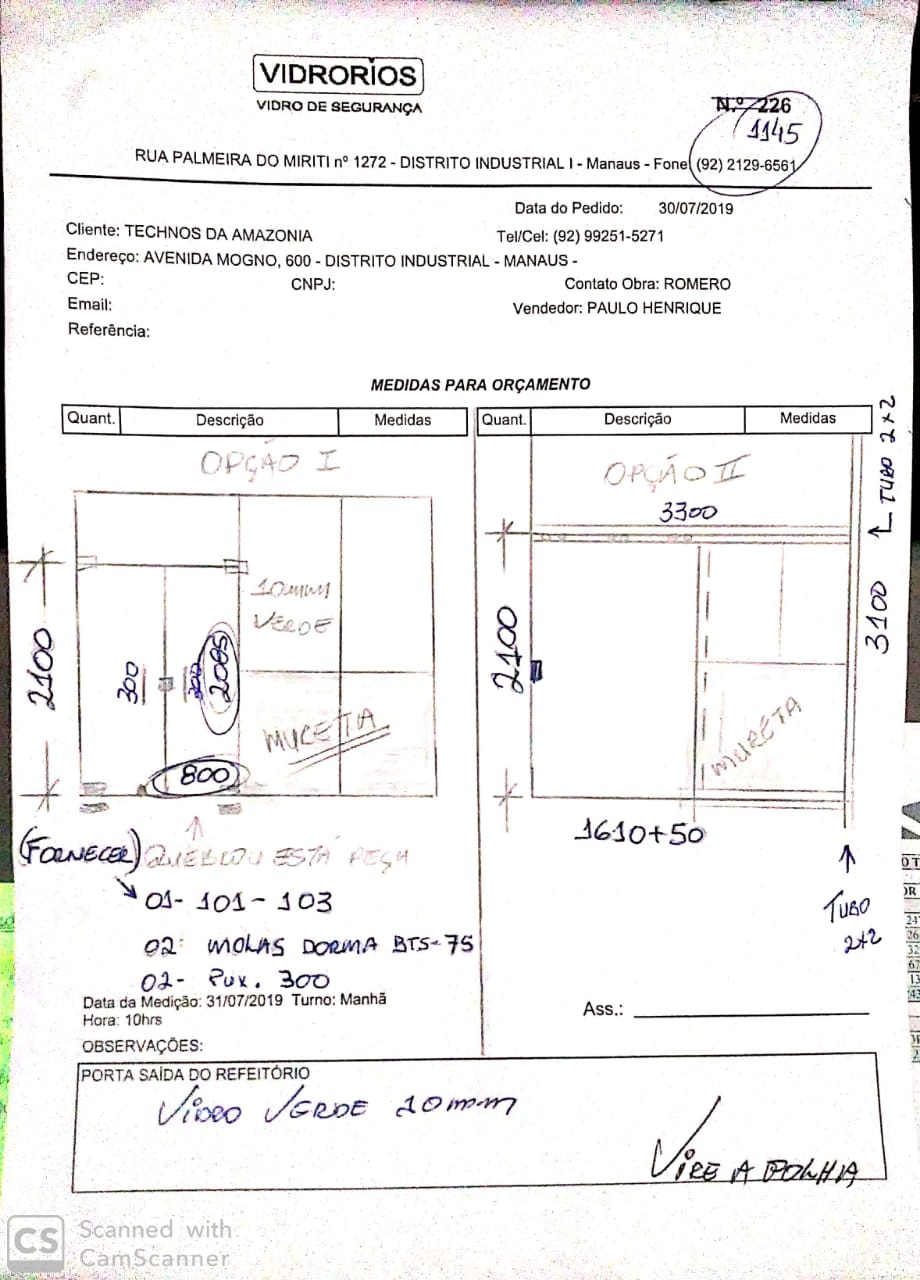 VIDRORIOS
VIDRO DE SEGURANÇA
N.º 226
1145
RUA PALMEIRA DO MIRITI nº 1272 - DISTRITO INDUSTRIAL I - Manaus - Fone (92) 2129-6561
Data do Pedido: 30/07/2019
Cliente: TECHNOS DA AMAZONIA Tel/Cel: (92) 99251-5271
Endereço: AVENIDA MOGNO, 600 - DISTRITO INDUSTRIAL - MANAUS -
CEP: CNPJ: Contato Obra: ROMERO
Email: Vendedor: PAULO HENRIQUE
Referência:
MEDIDAS PARA ORÇAMENTO
Quant. Descrição Medidas Quant. Descrição Medidas
OPÇÃO I
2100
300
300
2085
800
10mm
VERDE
MURETTA
(FORNECER) QUEBLOU ESTÁ PEÇA
01- 101-103
02: MOLAS DORMA BTS-75
02- PUX. 300
OPÇÃO II
3300
2100
3100
TUBO 2x2
MURETA
1610+50
TUBO
2x2
Data da Medição: 31/07/2019 Turno: Manhã
Hora: 10hrs
Ass.:
OBSERVAÇÕES:
PORTA SAÍDA DO REFEITÓRIO
VIDRO VERDE 10mm
VIRE A FOLHA
CS Scanned with
CamScanner